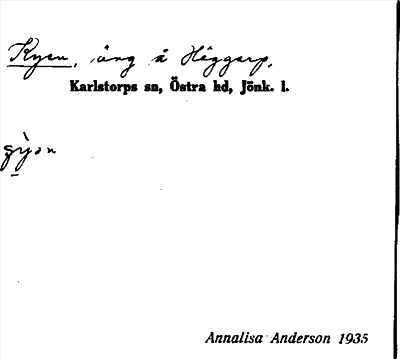 Kyen, äng å Häggarp.
Karlstorps sn, Östra hd, Jönk. l.
Annalisa Anderson 1935